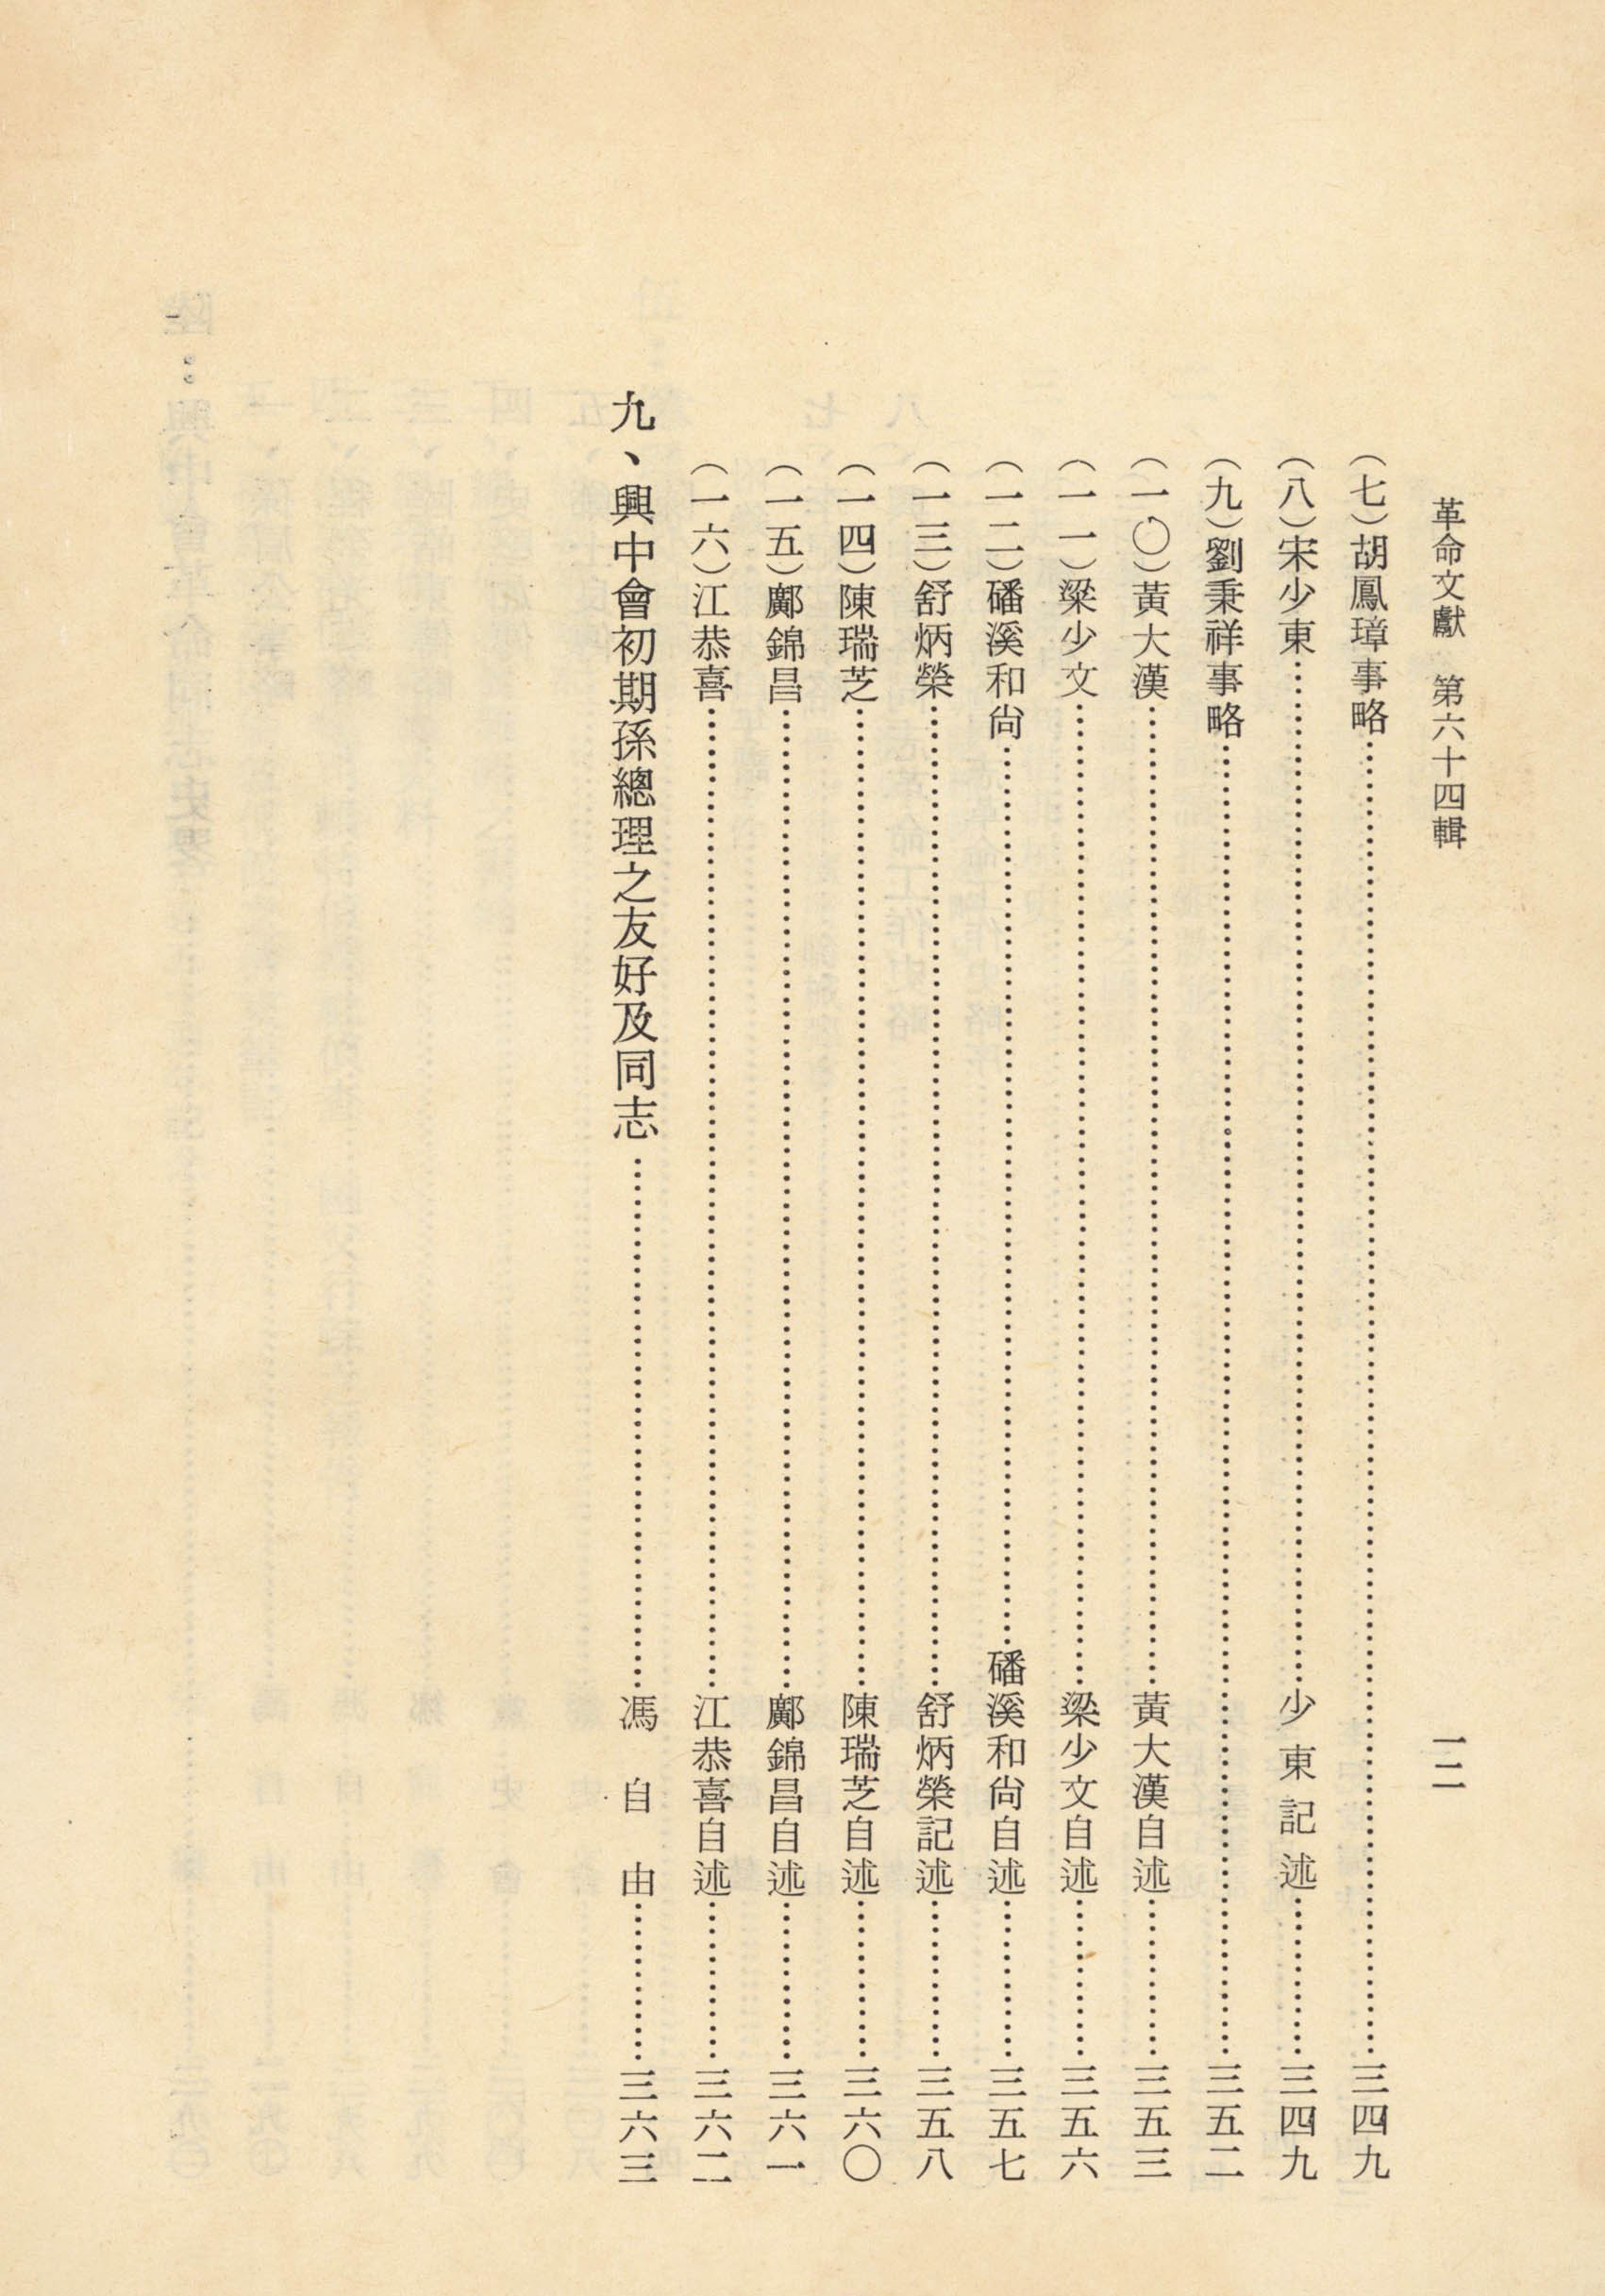 革命文獻　第六十四輯　一二
（七）胡鳳璋事略……三四九
（八）宋少東……少東記述……三四九
（九）劉秉祥事略……三五二
（一〇）黃大漢……黃大漢自述……三五三
（一一）梁少文……梁少文自述……三五六
（一二）磻溪和尙……磻溪和尙自述……三五七
（一三）舒炳榮……舒炳榮記述……三五八
（一四）陳瑞芝……陳瑞芝自述……三六〇
（一五）鄺錦昌……鄺錦昌自述……三六一
（一六）江恭喜……江恭喜自述……三六二
九、興中會初期孫總理之友好及同志……馮自由……三六三